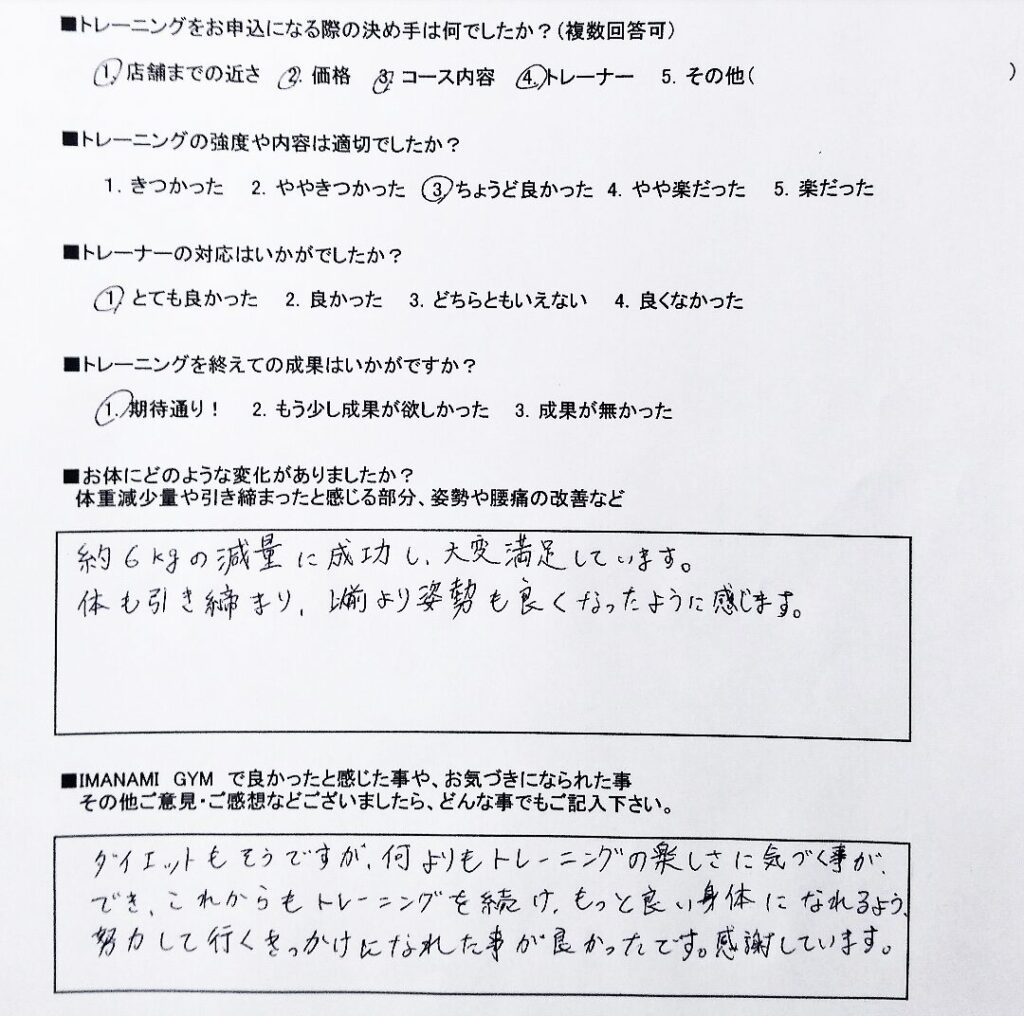 ■トレーニングをお申込になる際の決め手は何でしたか？(複数回答可)
1. 店舗までの近さ 2. 価格 3. コース内容 4. トレーナー 5. その他( )
■トレーニングの強度や内容は適切でしたか？
1. きつかった 2. ややきつかった 3. ちょうど良かった 4. やや楽だった 5. 楽だった
■トレーナーの対応はいかがでしたか？
1. とても良かった 2. 良かった 3. どちらともいえない 4. 良くなかった
■トレーニングを終えての成果はいかがですか？
1. 期待通り！ 2. もう少し成果が欲しかった 3. 成果が無かった
■お体にどのような変化がありましたか？
体重減少量や引き締まったと感じる部分、姿勢や腰痛の改善など
約6kgの減量に成功し、大変満足しています。
体も引き締まり、以前より姿勢も良くなったように感じます。
■IMANAMI GYM で良かったと感じた事や、お気づきになられた事
その他ご意見・ご感想などございましたら、どんな事でもご記入下さい。
ダイエットもそうですが、何よりもトレーニングの楽しさに気づく事が、
でき、これからもトレーニングを続け、もっと良い身体になれるよう、
努力して行くきっかけになれた事が良かったです。感謝しています。